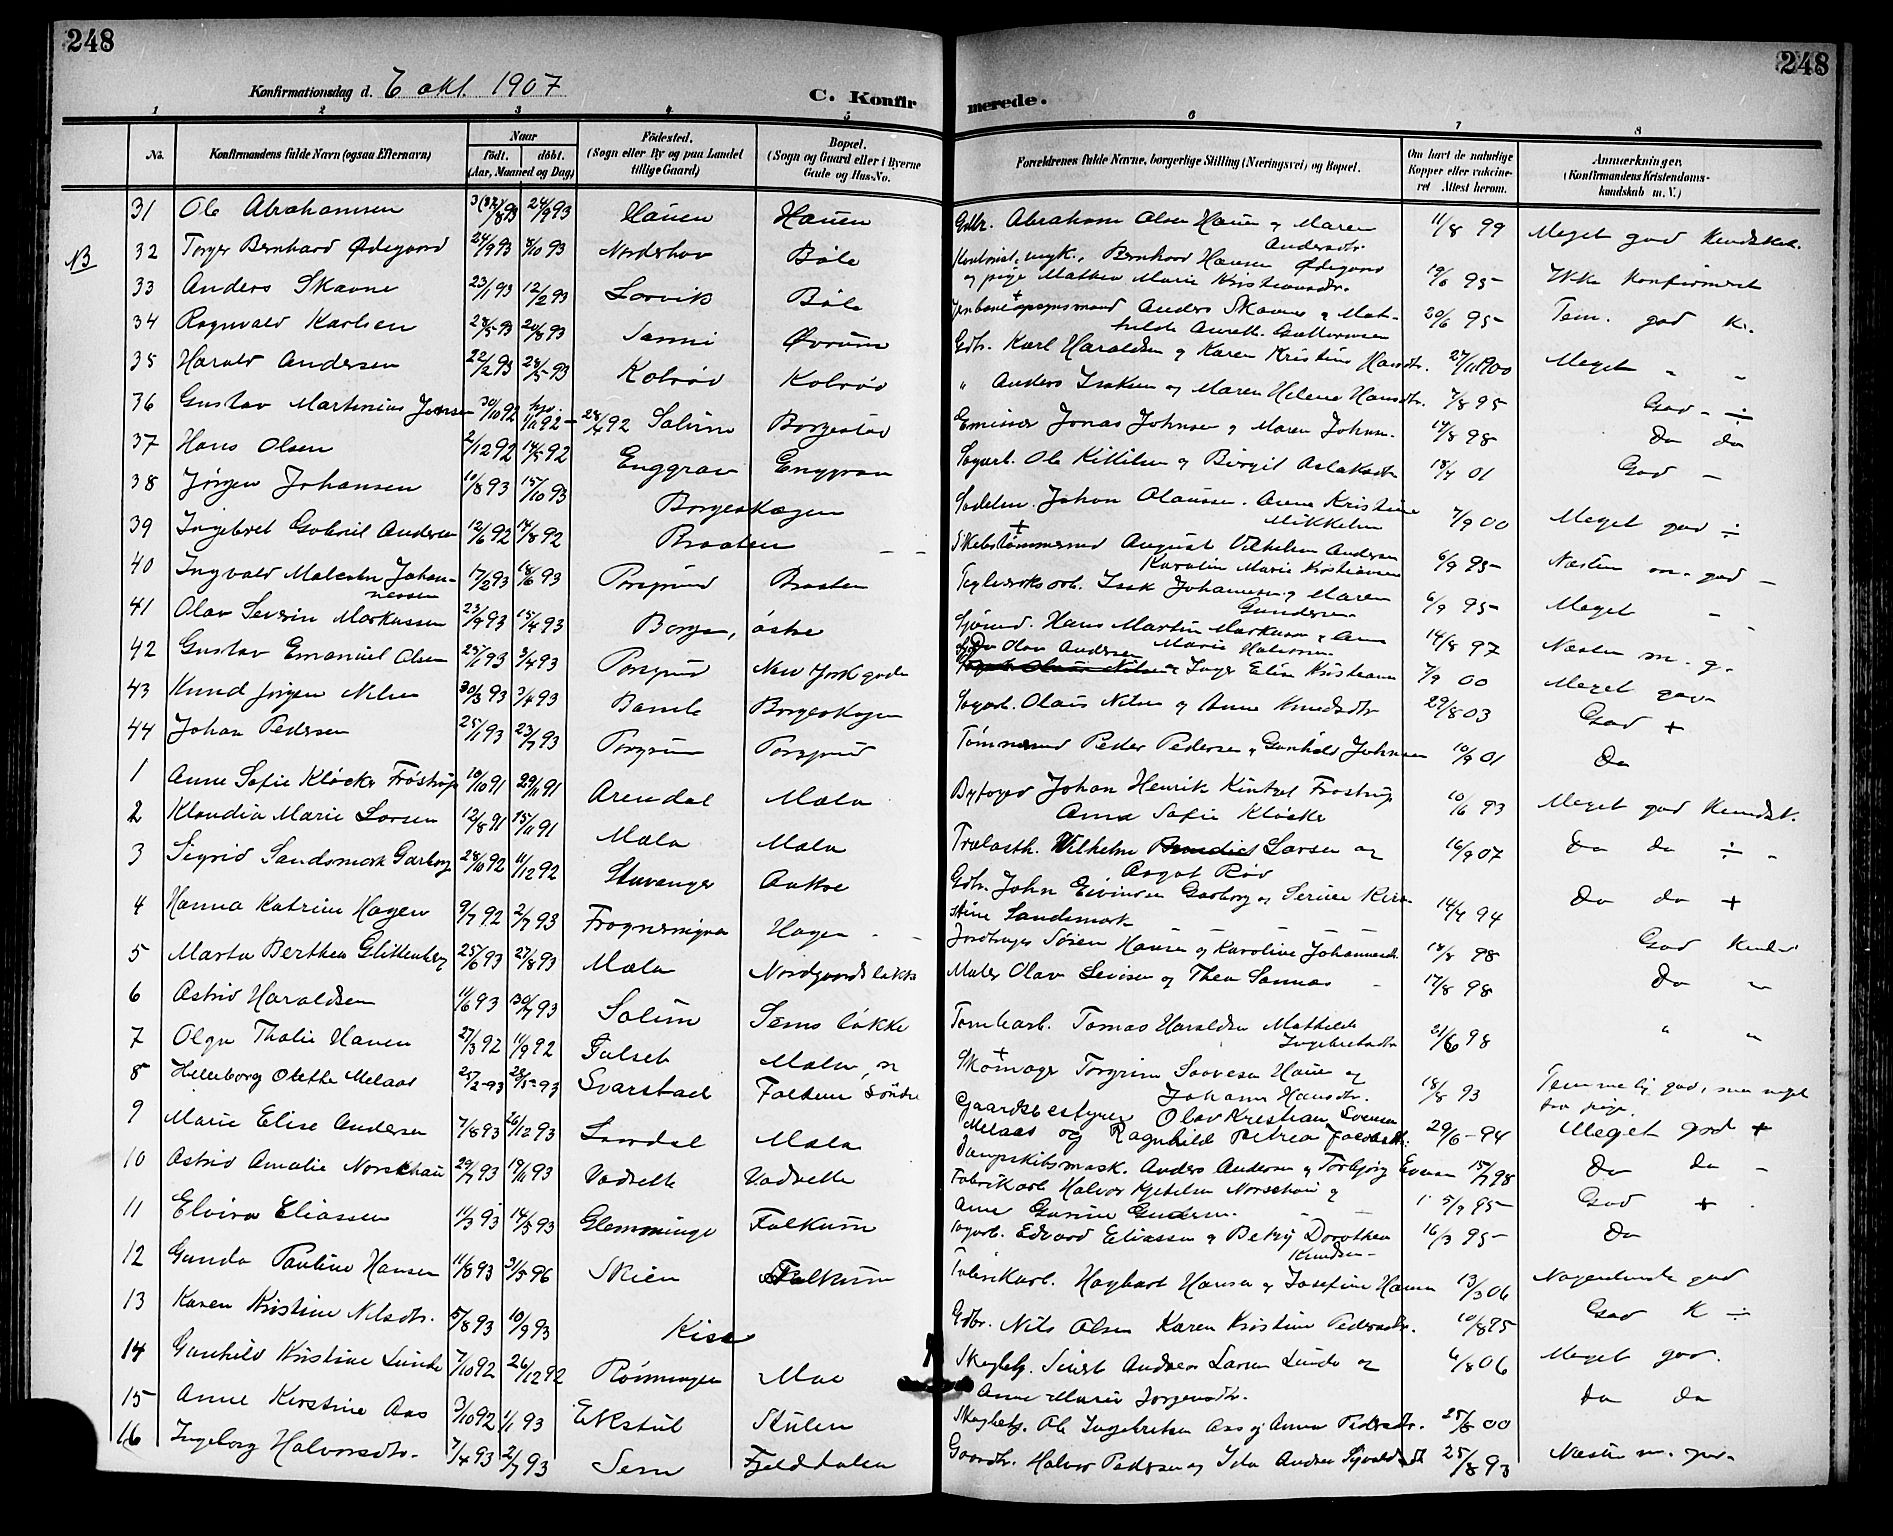 248
248
Konfirmationsdag d. 6 okt. 1907
C. Konfirmerede.
1 2 3 4 5 6 7 8
No.
Konfirmandens fulde Navn (ogsaa Efternavn)
Naar
födt. döbt.
(Aar, Maaned og Dag)
Födested.
(Sogn eller By og paa Landet
tillige Gaard)
Bopæl.
(Sogn og Gaard eller i Byerne
Gade og Hus-No.
Forældrenes fulde Navne, borgerlige Stilling (Næringsvei) og Bopæl.
Om havt de naturlige
Kopper eller vakcine-
ret Attest herom.
Anmærkninger.
(Konfirmandens Kristendoms-
kundskab m. V.)
31 Ole Abrahamsen 24/9 93 Hauen Hauen Gdbr. Abraham Olsen Hauen og Maren Andersdtr. 11/8 99 Meget god Kundskab.
NB 32 Torger Bernhard Ødegaard 24/9 93 8/10 93 Norderhov Böle Bernhard Hansen Ødegaard og pige Mathea Marie Kristiansdtr. 19/6 95 Ikke konfirmeret
33 Anders Skavne 23/1 93 12/2 93 Larvik Böle Anders Skavne 20/6 95 Tem. god K.
34 Ragnvald Karlsen 28/5 93 20/8 93 Sanni Øvrum Gdbr. Karl Haraldsen og Karen Kristine Hansdtr. 27/11 1900 Meget " "
35 Harald Andersen 22/2 93 28/5 93 Kolröd Kolröd " Anders Isaksen og Maren Helene Hansdtr. 7/8 95 God - ÷
36 Gustav Martinius Jonsen 30/10 92 28/4 92 Solum Borgestad Jonas Johnsen og Maren Johnsen. 14/8 98 Do do
37 Hans Olsen 2/12 92 14/5 92 Enggrav Enggrav Ole Kittilsen og Birgit Aslaksdtr 18/7 01 God -
38 Jørgen Johansen 10/8 93 15/10 93 Borgeskogen Johan Olaussen. Arene Kristine Mikkelsen 7/9 00 Meget god ÷
39 Ingebret Gabriel Andersen 12/6 92 14/8 92 Braaten - - August Vilhelm Andersen Karolin Marie Kristiansen 6/9 95 Næsten m. god -
40 Ingvald Malcolm Johannessen 17/2 93 18/6 93 Porsgrund Braaten Teglverksarb. Isak Johannesen og Maren Gundersen 6/9 95 Meget -
41 Olav Severin Markussen 23/2 93 15/4 93 Borge, östre Sjömd. Hans Martin Markussen og Anne Marie Halvorsen 14/8 97 Næsten m. g.
42 Gustav Emanuel Olsen 25/1 93 3/4 93 Porsgrund New York gade Do Olav Andersen og Inger Elise Kristiansen 7/9 00 Meget god
43 Knud Jörgen Nilsen 30/3 93 3/4 93 Bamle Borgeskogen Olaus Nilsen og Anne Knudsdtr 29/8 03 God +
44 Johan Pedersen 25/1 93 23/7 93 Porsgrund Porsgrund Tömmermd Peder Pedersen og Gunhild Johnsen 10/9 01 Do
1 Anne Sofie Klöcker Fröstrup 10/10 91 29/11 91 Arendal Mæla Byfoged Johan Henrik Kintzel Frostrup Anna Sofie Klöcker 10/6 93 Meget god Kundsk.
2 Klaudia Marie Larsen 12/8 91 15/11 91 Mæla Mæla Trælasth. Vilhelm Larsen og Aagot Röd 16/9 07 Do do ÷ "
3 Sigrid Sandsmark Garborg 28/10 92 11/12 92 Stavanger Gdbr. John Eivindsen Garborg og Serine Kirstine Sandsmark 14/4 94 Do do +
4 Hanna Katrine Hagen 9/7 92 2/7 93 Hagen - Sören Hansen og Karoline Johannesdtr. 14/8 98 God Kunds
5 Marta Berthea Glittenberg 25/6 93 27/8 93 Mæla Nordgaards lökke Maler Olav Sevisen og Thea Sannas 17/8 98 Do "
6 Astrid Haraldsen 11/6 93 30/7 93 Solum Sems lökke Tomas Haraldsen Mathilde Ingebretsdtr 21/6 98 " "
7 Olga Thalie Hauen 27/3 92 11/9 92 Falset Mæla, n Skomager Torgrim Saavesen Hauen og Johanne Hansdtr. 18/8 93 Temmelig god,
8 Helleborg Olette Melaas 25/2 93 28/5 93 Svarstad Falkum Söndre Gaardsbestyrer Olav Kristian Svensen Melaas og Ragnhild Petrea 29/6 94 Meget god +
9 Marie Elise Andersen 7/8 93 26/12 93 Mæla Dampskibsmask. Anders Andersen og Torbjörg Evensen 15/7 98 Do do -
10 Astrid Amalie Norschau 29/7 93 19/11 93 Vadrette Vadrette Fabrikarb Halvor Kjetilsen Norschau og Anne Gurine Gundersen. 5/9 95 God +
11 Elvira Eliassen 11/3 93 14/5 93 Glemminge Falkum Edvard Eliassen og Betsy Dorothea Knudsen 16/3 95 Do
12 Gunda Pauline Hansen 11/8 93 31/5 96 Skien Falkum Fabrikarb. Hagbart Hansen og Josefine Hansen 13/3 06 Nogenlunde god
13 Karen Kristine Nilsdtr. 5/8 93 10/9 93 Kise Gdbr. Nils Olsen Karen Kristine Pedersdtr. 10/8 95 God K ÷
14 Gunhild Kristine Lunde 7/10 92 26/12 92 Rönningen Moe Skogbetj. Sivert Andreas Larsen Lunde og Anne Marie Jorgensdtr. 6/8 06 Meget god.
15 Anne Kirstine Aas 3/10 92 1/1 93 Ekstul Stulen Skogbetj. Ole Ingebretsen Aas og Anne Pedersdtr. 25/8 00 Do do
16 Ingeborg Halvorsdtr. 7/4 93 2/7 93 Sem Fjeldtalen Gaardbr. Halvor Pedersen og Ida Andrea Syvaldsdtr 25/8 93 Næsten m. god